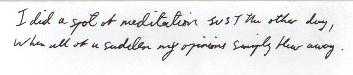 I did a spot of meditation JUST the other day,
When all of a sudden my opinions simply blew away.